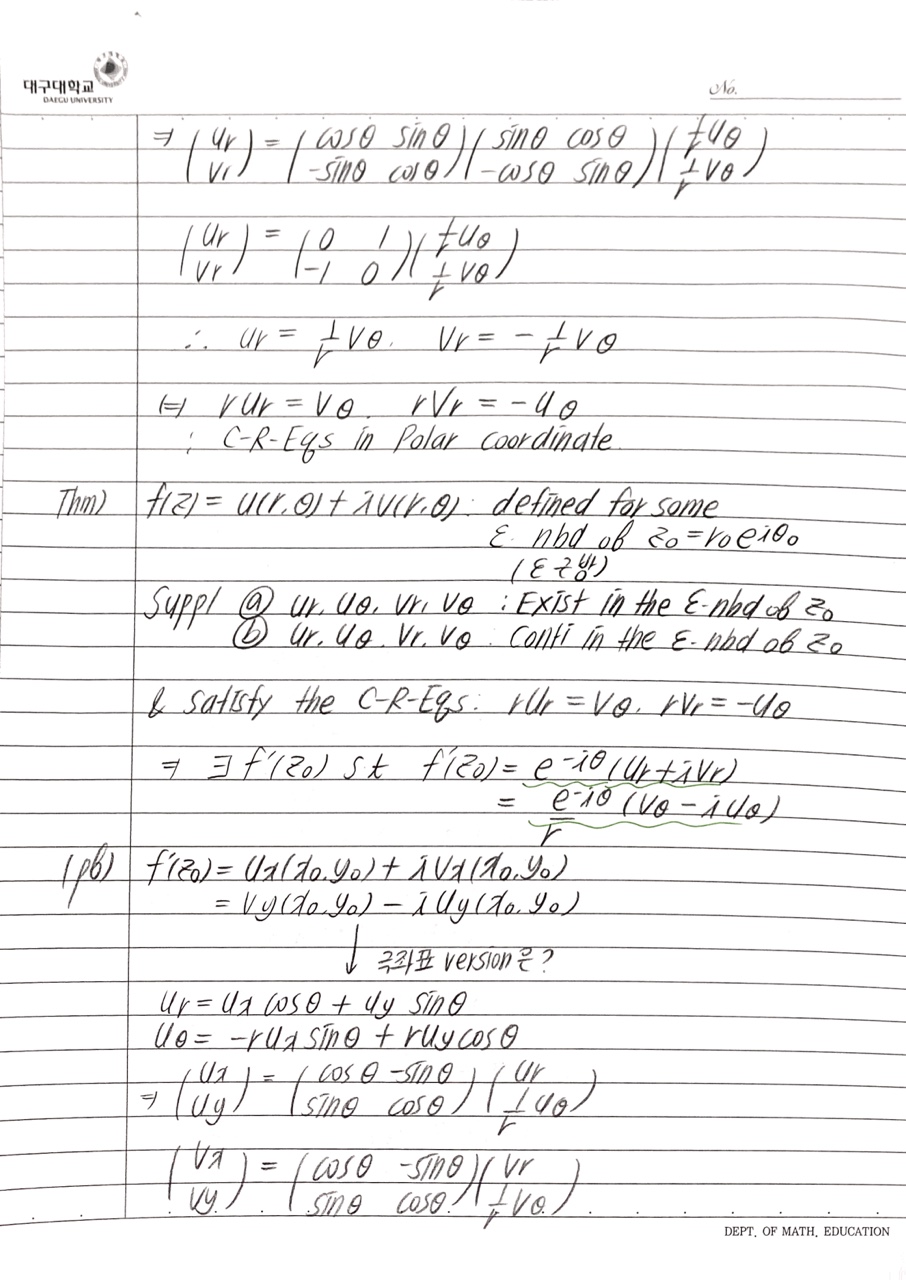 대구대학교
DAEGU UNIVERSITY
No.
⇒ (ur / vr) = (cosθ sinθ / -sinθ cosθ)(sinθ cosθ / -cosθ sinθ)(1/r uθ / 1/r vθ)
(ur / vr) = (0 1 / -1 0)(1/r uθ / 1/r vθ)
∴ ur = 1/r vθ, vr = - 1/r vθ
⇔ rur = vθ, rvr = -uθ
: C-R-Eqs in Polar coordinate.
Thm) f(z) = u(r,θ) + iv(r,θ) : defined for some
ε-nbd of z₀ = r₀e^iθ₀
(ε근방)
Suppl ⓐ ur, uθ, vr, vθ : Exist in the ε-nbd of z₀
ⓑ ur, uθ, vr, vθ : conti in the ε-nbd of z₀
& satisfy the C-R-Eqs : rur = vθ, rvr = -uθ
⇒ ∃ f'(z₀) s t f'(z₀) = e^-iθ (ur + ivr)
= e^-iθ/r (vθ - iuθ)
(pb) f'(z₀) = ux(x₀,y₀) + ivx(x₀,y₀)
= vy(x₀,y₀) - iuy(x₀,y₀)
↓ 극좌표 version은?
ur = ux cosθ + uy sinθ
uθ = -rux sinθ + ruy cosθ
⇒ (ux / uy) = (cosθ -sinθ / sinθ cosθ)(ur / 1/r uθ)
(vx / vy) = (cosθ -sinθ / sinθ cosθ)(vr / 1/r vθ)
DEPT. OF MATH. EDUCATION